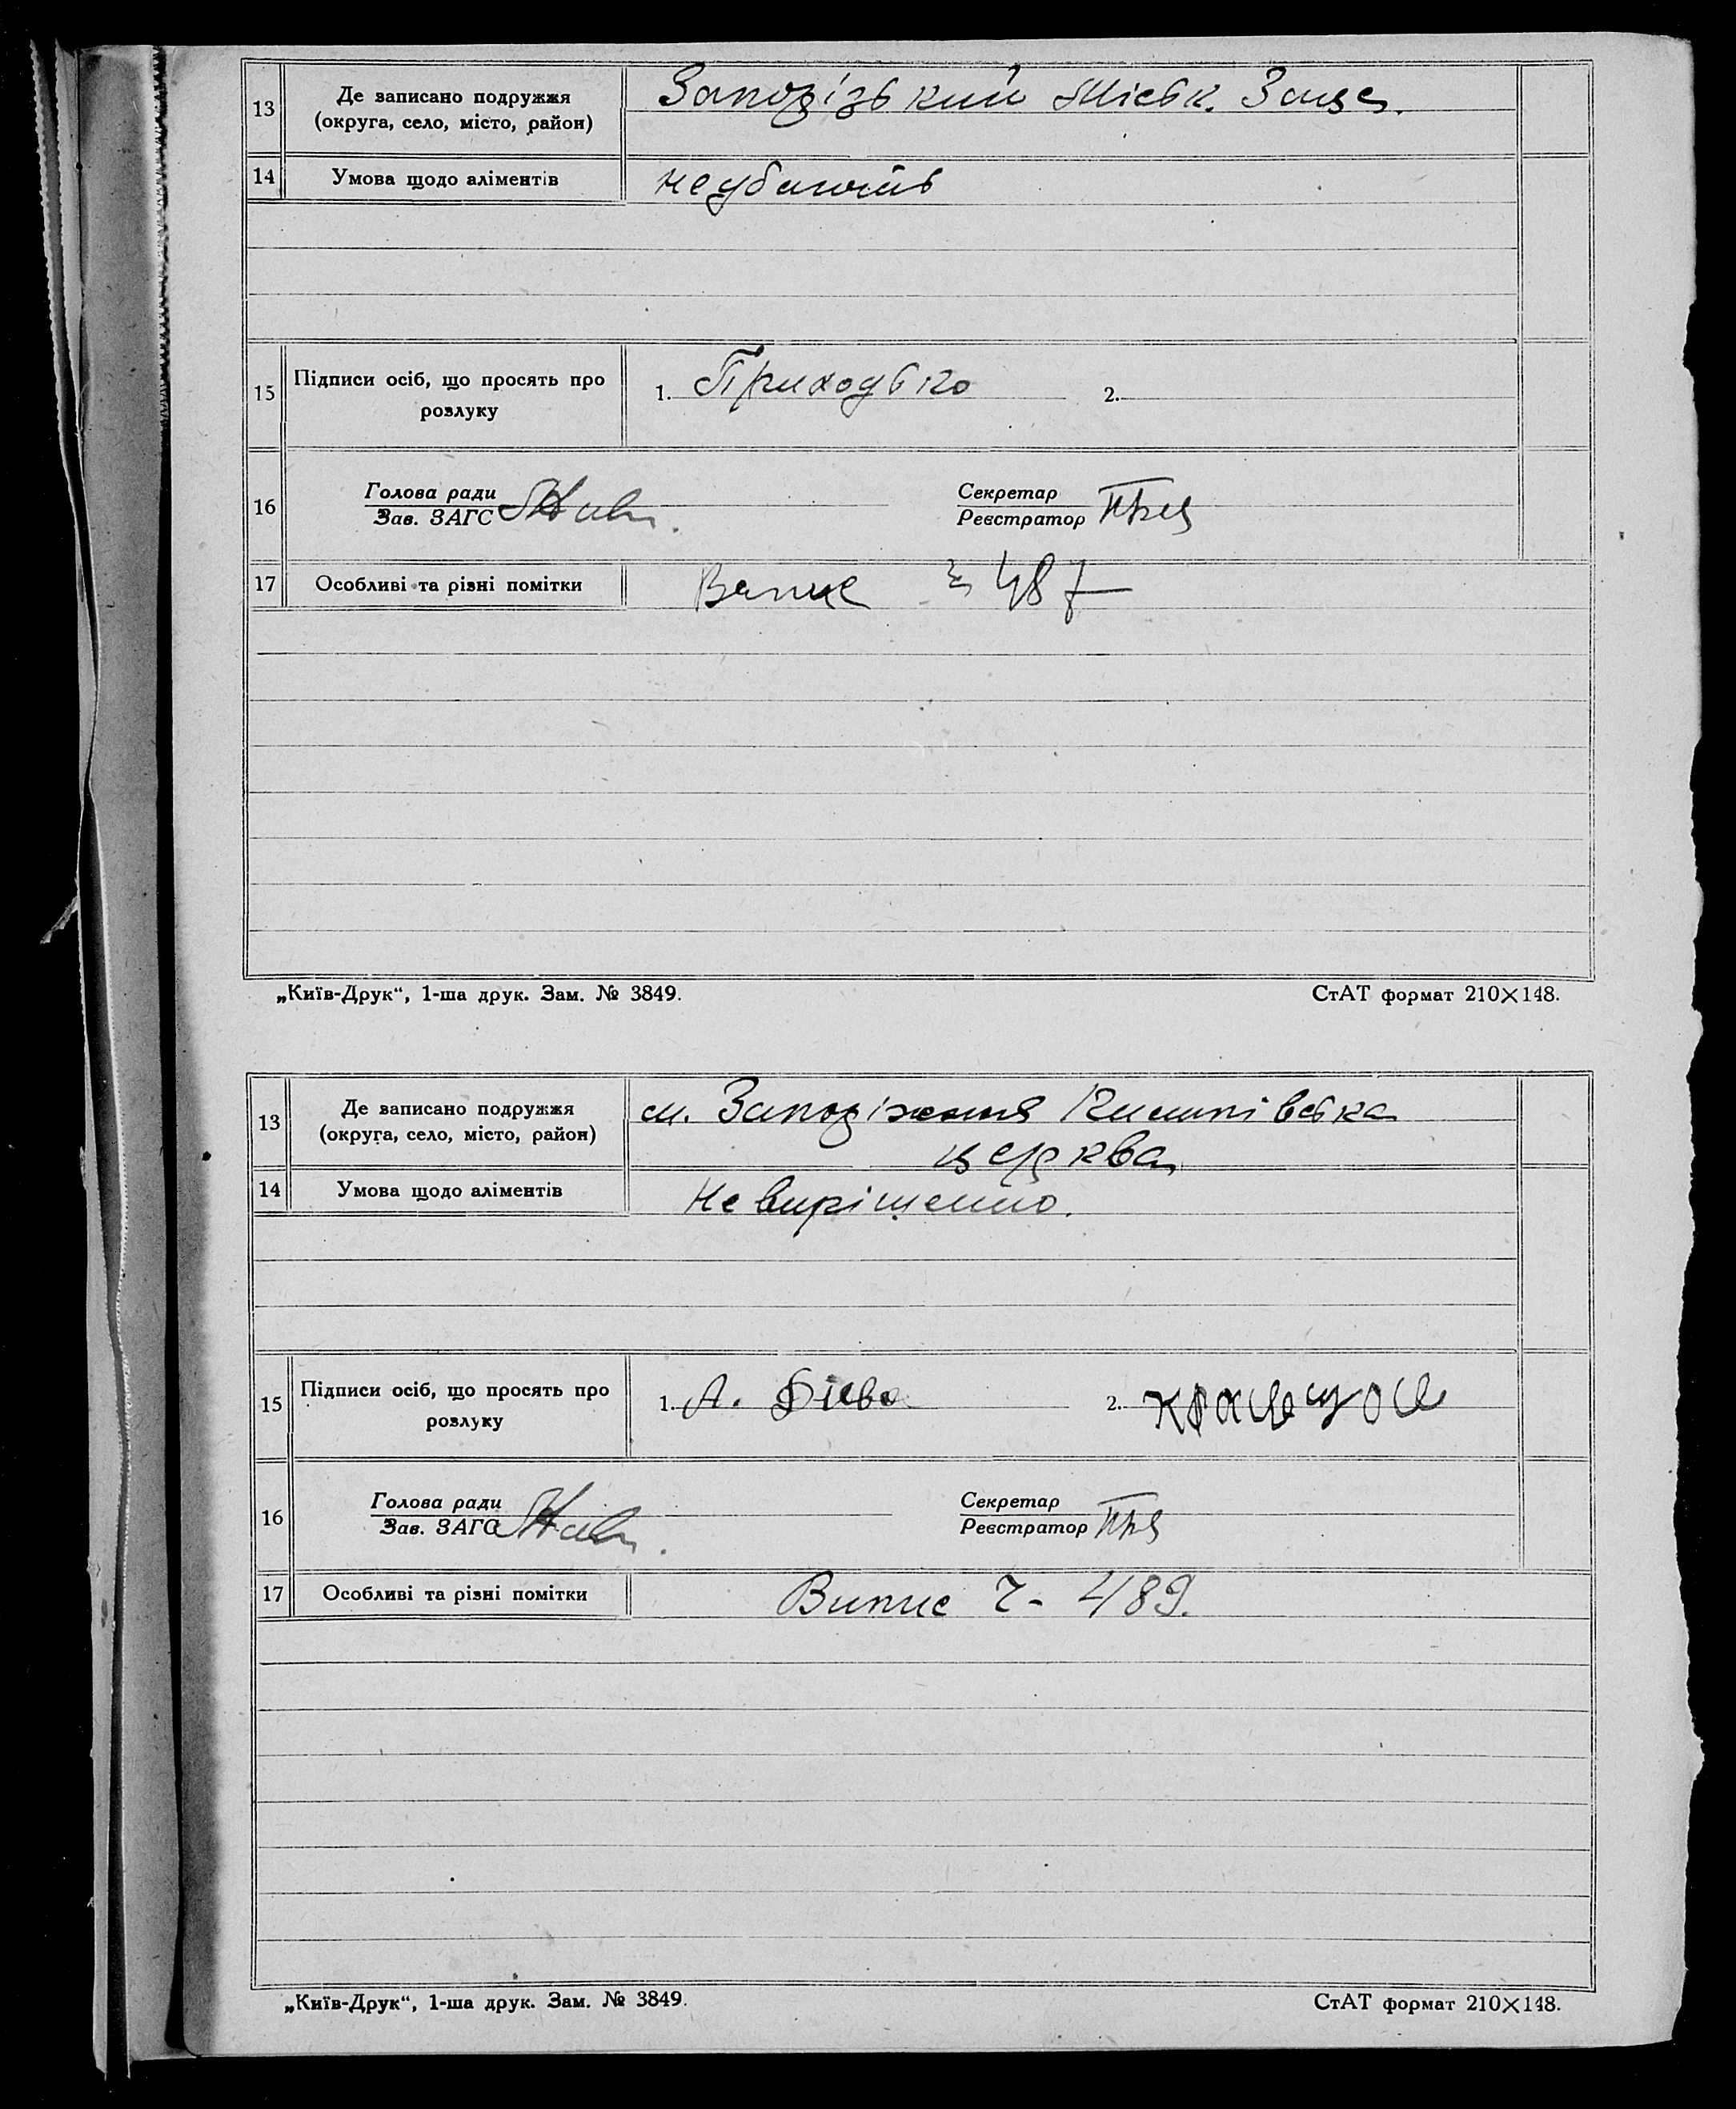 13
Де записано подружжя
(округа, село, місто, район)
Запорізький Міськ. Загс.
14
Умова щодо аліментів
15
Підписи осіб, що просять про
розлуку
1. Приходько
2.
16
Голова ради
Зав. ЗАГС
Секретар
Реєстратор
17
Особливі та різні помітки
487
„Київ-Друк“, 1-ша друк. Зам. № 3849.
СтАТ формат 210×148.
13
Де записано подружжя
(округа, село, місто, район)
м. Запоріжжя
церква
14
Умова щодо аліментів
Не вирішенно.
15
Підписи осіб, що просять про
розлуку
1. А.
2.
16
Голова ради
Зав. ЗАГС
Секретар
Реєстратор
17
Особливі та різні помітки
Випис ч- 489.
„Київ-Друк“, 1-ша друк. Зам. № 3849.
СтАТ формат 210×148.